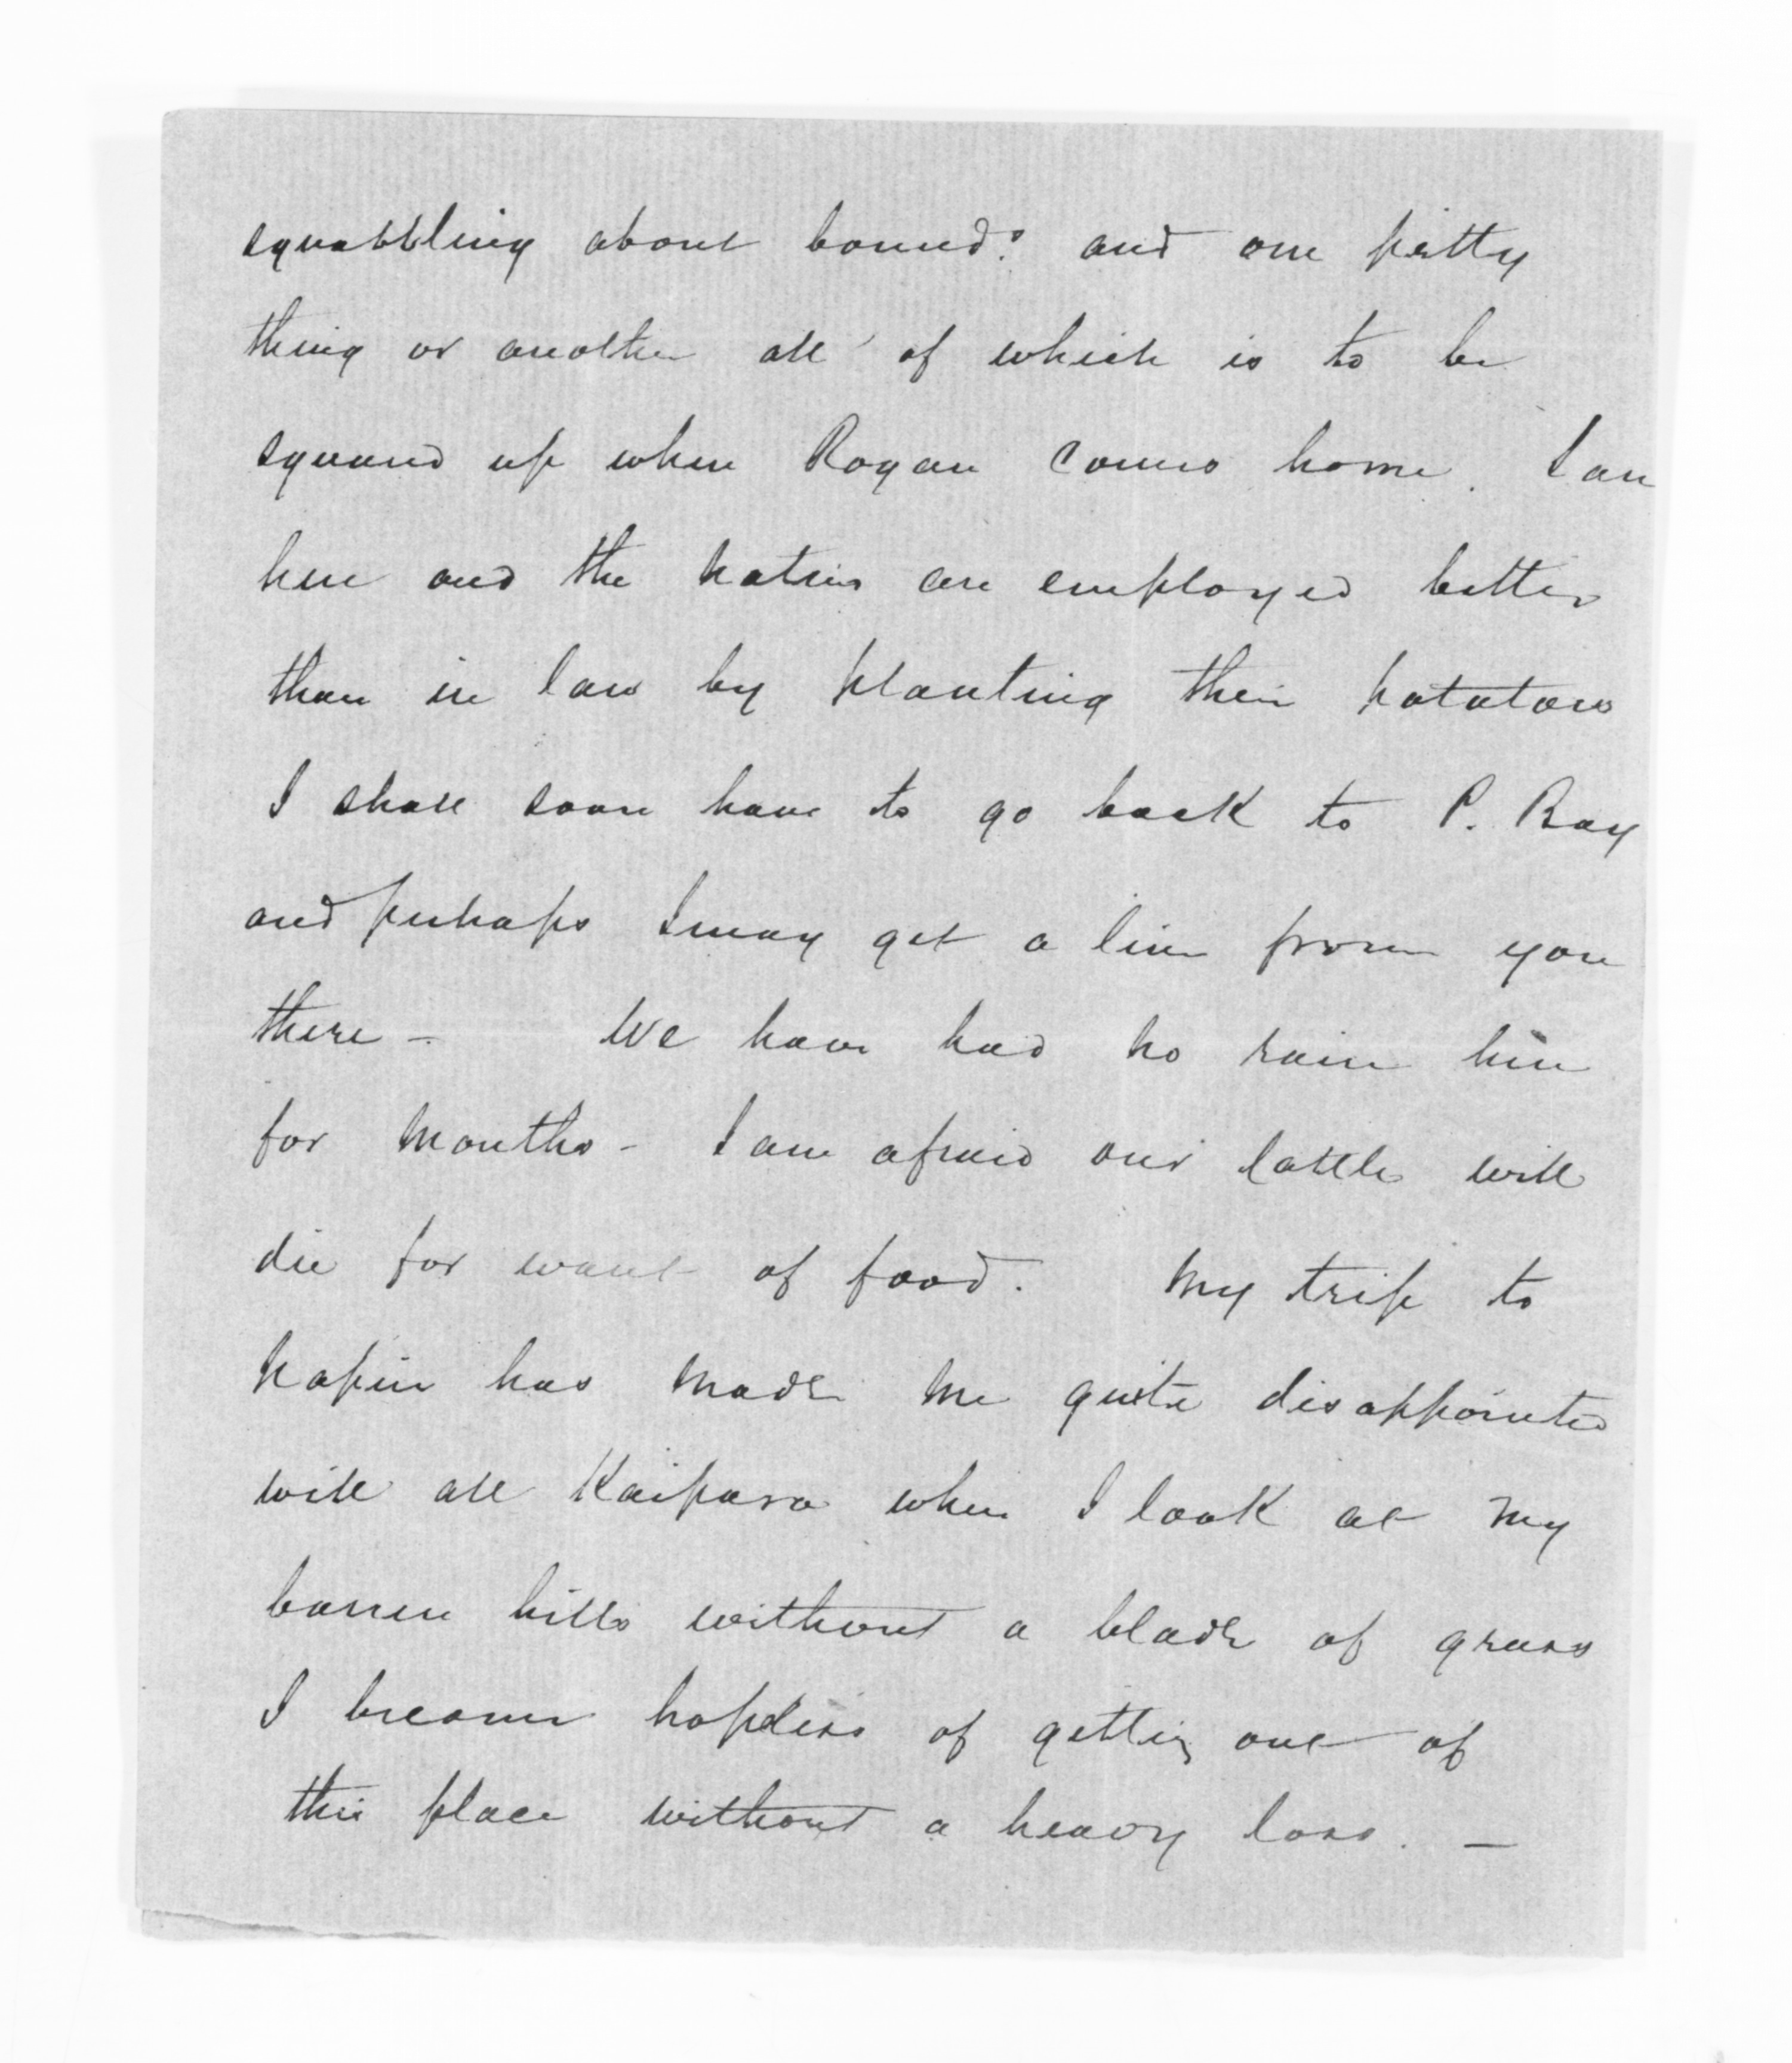 squabbling about bound.s and one petty
thing or another all of which is to be
squared up when Rogan comes home. I am
here and the natives are employed better
than in law by planting their potatoes
I shall soon have to go back to P. Bay
and perhaps I may get a line from you
there - We have had no rain here
for months - I am afraid our cattle will
die for want of food. My trip to
Napier has made me quite disappointed
with all Kaipara when I look at my
barren hills without a blade of grass
I become hopeless of getting out of
this place without a heavy loss. -